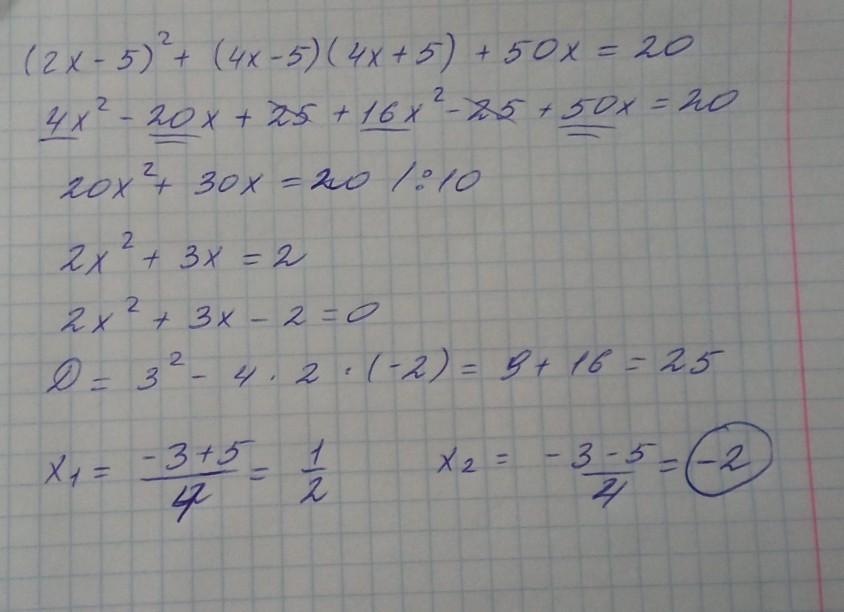 (2x - 5)² + (4x - 5)(4x + 5) + 50x = 20
4x² - 20x + 25 + 16x² - 25 + 50x = 20
20x² + 30x = 20 /:10
2x² + 3x = 2
2x² + 3x - 2 = 0
D = 3² - 4 · 2 · (-2) = 9 + 16 = 25
x₁ = (-3+5)/4 = 1/2    x₂ = (-3-5)/4 = -2